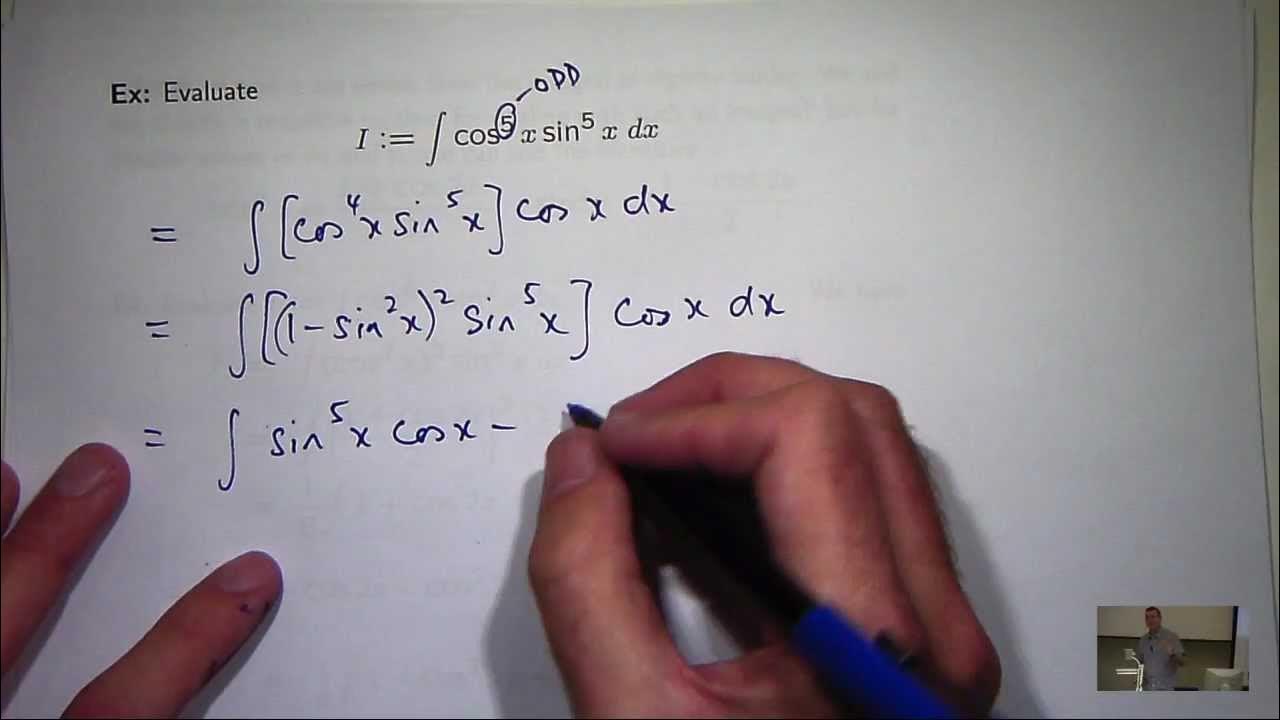 ODD
Ex: Evaluate
I := ∫ cos⁵ x sin⁵ x dx
= ∫ [cos⁴x sin⁵x] cos x dx
= ∫ [(1 - sin²x)² sin⁵x] cos x dx
= ∫ sin⁵x cos x -